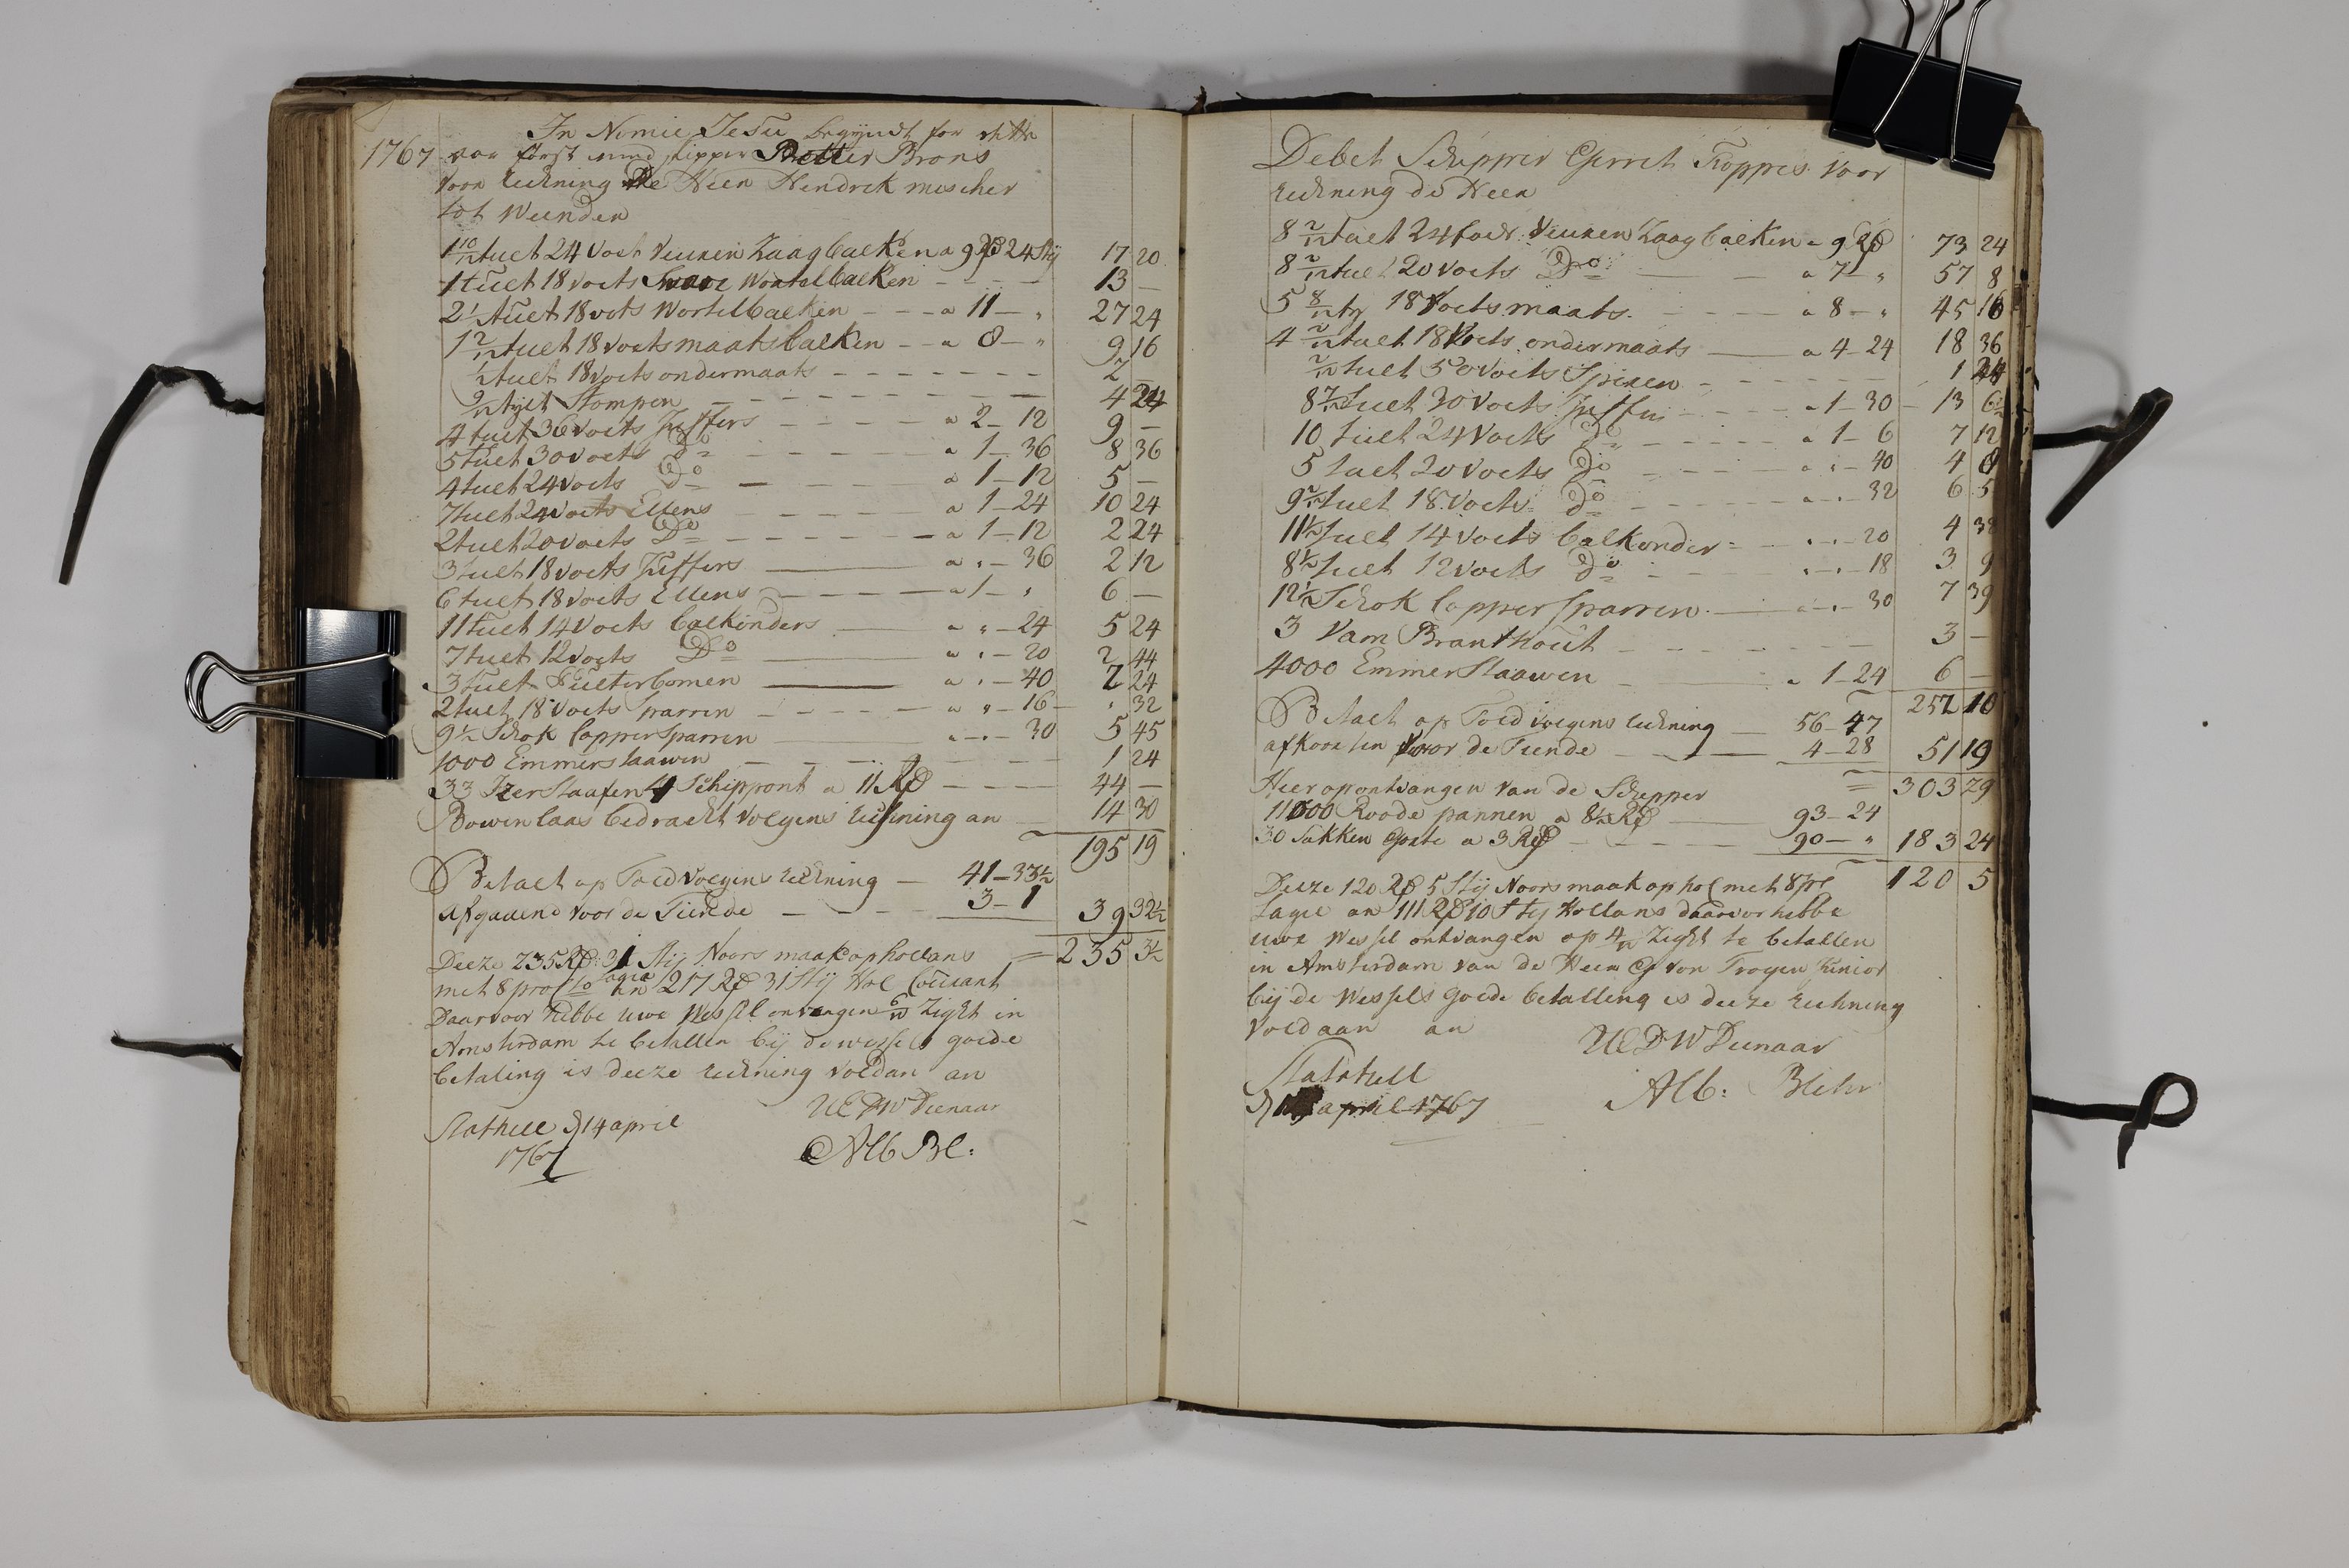 In Nomie Jesu begijndt for dette
1767 aar først med skipper Potter Brons
voor reckning De Heer Hendrek mescher
tot Weenden
1 10/12 tuelt 24 Voet Veuren Zaagbalken a 9 Rd 24 Stij 17 20
1 tuelt 18 voets Svaare Wortelbalken 13 —
2 1/2 tuelt 18 vots Wortelbalken a 11 — " 27 24
1 2/12 tuelt 18 voets maatsbalken a 8 — " 9 16
1/2 tuelt 18 voets ondermaats 2 —
9/12 tylt Stompen 4 24
4 tuelt 36 voets Juffers a 2 — 12 9 —
5 tuelt 30 voets Do a 1 — 36 8 36
4 tuelt 24 voets Do a 1 — 12 5 —
7 tuelt 24 voets Ellens a 1 — 24 10 24
2 tuelt 20 voets Do a 1 — 12 2 24
3 tuelt 18 voets Juffers a " — 36 2 12
6 tuelt 18 voets Ellens a 1 — " 6 —
11 tuelt 14 Voets balkonders a " — 24 5 24
7 tuelt 12 voets Do a " — 20 2 44
3 tuelt Fueterbomen a " — 40 2 24
2 tuelt 18 Voets Sparren a " — 16 " 32
9 1/2 Schok Copper Sparren a " — 30 5 45
1000 Emmerstaawen 1 24
33 Izerstaafen 4 Schippont a 11 Rd 44 —
Bowen laas bedracht volgens reckning an 14 30
195 19
Betaelt op Toed volgens reckning — 41 — 33 1/2
afgaaend voor de Tiende 3 — 1 39 32 1/2
Deeze 235 Rd: 3 1/2 Stij Noors maak op hollans = 235 3 1/2
met 8 pro Co lagie an 217 Rd 31 Stij Hol Courant
Daarvoor hebbe uwe Wessel ontvangen 6/w Zight in
Amsterdam te betallen bij de wessels goede
betaling is deeze reckning voldan an
UEDW Dienaar
Stathell d 14 april
1767
Alb Bl:
Debet Schipper Gerret Foppes voor
reckning de Heer
8 2/12 tuelt 24 foed Veuren Zaag balken a 9 Rd 73 24
8 2/12 tuelt 20 voets Do a 7 — " 57 8
5 8/12 ty 18 Voets maats a 8 — " 45 16
4 2/12 tuelt 18 Voets ondermaats a 4 — 24 18 36
2/12 tuelt 50 voets Spiren 1 24
8 7/12 tuelt 30 Voets Juffers a 1 — 30 13 6
10 tuelt 24 Voets Do a 1 — 6 7 12
5 tuelt 20 voets Do a " — 40 4 8
9 2/12 tuelt 18 Voets Do a " — 32 6 5
11 1/2 tuelt 14 voets balkonder " — 20 4 38
8 1/2 tuelt 12 voets Do " — 18 3 9
12 1/2 Schok Copper Sparren a " — 30 7 39
3 Vam Branthout 3 —
4000 Emmerstaawen a 1 — 24 6 —
252 10
Betaelt op Toed volgens reckning 56 — 47
afkorten voor de Tiende 4 — 28 51 19
Hier op ontvangen van de Schepper = 303 29
11000 Roode pannen a 8 1/2 Rd 93 — 24
30 Sakken Gorte a 3 Rd 90 — " 183 24
Deeze 120 Rd 5 Stij Noors maak op hol met 8 pC 120 5
Lagie an 111 Rd 10 Stij Hollans daarvor hebbe
uwe Wessel ontvangen op 4/w Zight te betallen
in Amsterdam van de Heer G von Trogen Junior
bij de Wessels goede betalling is deeze reckning
voldaan an
UEDW Dienaar
Stathell
april 1767
Alb: Blehr